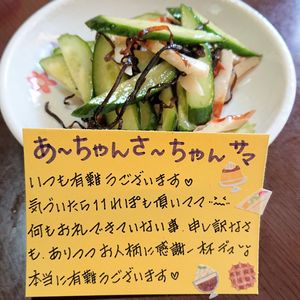 あ〜ちゃんさ〜ちゃんサマ
いつも有難うございます♡
気づいたら11れぽも頂いてて
何もお礼できていない事、申し訳なさ
も、ありつつお人柄に感謝一杯デス
本当に有難うございます♡